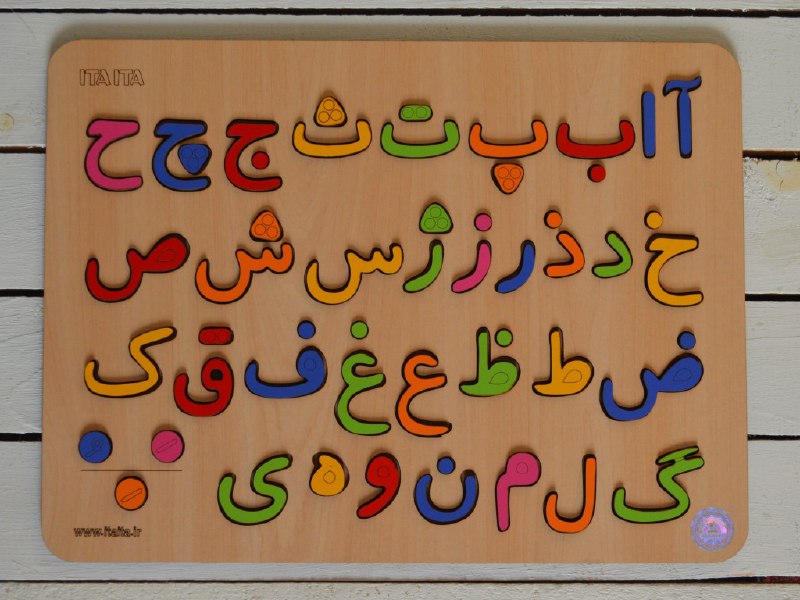 ITA ITA
آ ا ب پ ت ث ج چ ح
خ د ذ ر ز ژ س ش ص
ض ط ظ ع غ ف ق ک
گ ل م ن و ه ی
www.itaita.ir